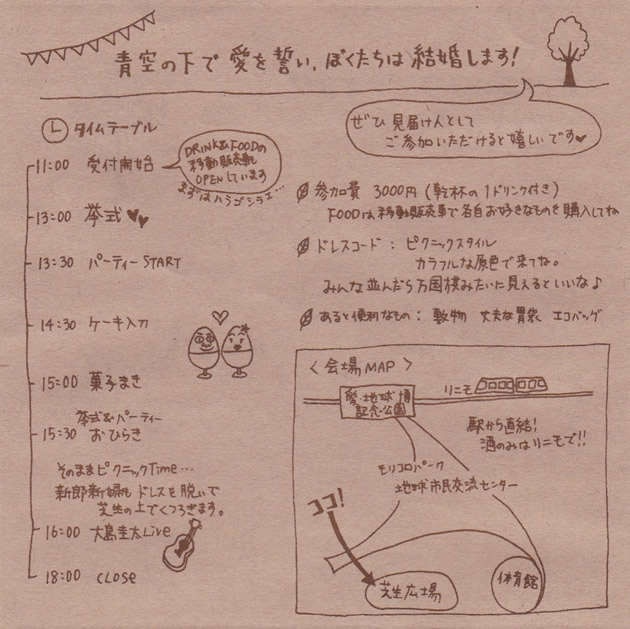 青空の下で愛を誓い、ぼくたちは結婚します!
ぜひ見届け人として
ご参加いただけると嬉しいです♥
タイムテーブル
11:00 受付開始
DRINK&FOODの
移動販売車
OPENしています
まずはハラゴシラエ…
13:00 挙式♥♥
13:30 パーティーSTART
14:30 ケーキ入刀
15:00 菓子まき
挙式&パーティー
15:30 おひらき
そのままピクニックTime…
新郎新婦もドレスを脱いで
芝生の上でくつろぎます。
16:00 大島圭太Live
18:00 CLOSE
参加費 3000円(乾杯の1ドリンク付き)
FOODは移動販売車で各自お好きなものを購入してね
ドレスコード: ピクニックスタイル
カラフルな原色で来てね。
みんな並んだら万国旗みたいに見えるといいな♪
あると便利なもの: 敷物 丈夫な胃袋 エコバッグ
〈会場MAP〉
愛・地球博
記念公園
リニモ
駅から直結!
酒のみはリニモで!!
モリコロパーク
地球市民交流センター
ココ!
芝生広場
体育館